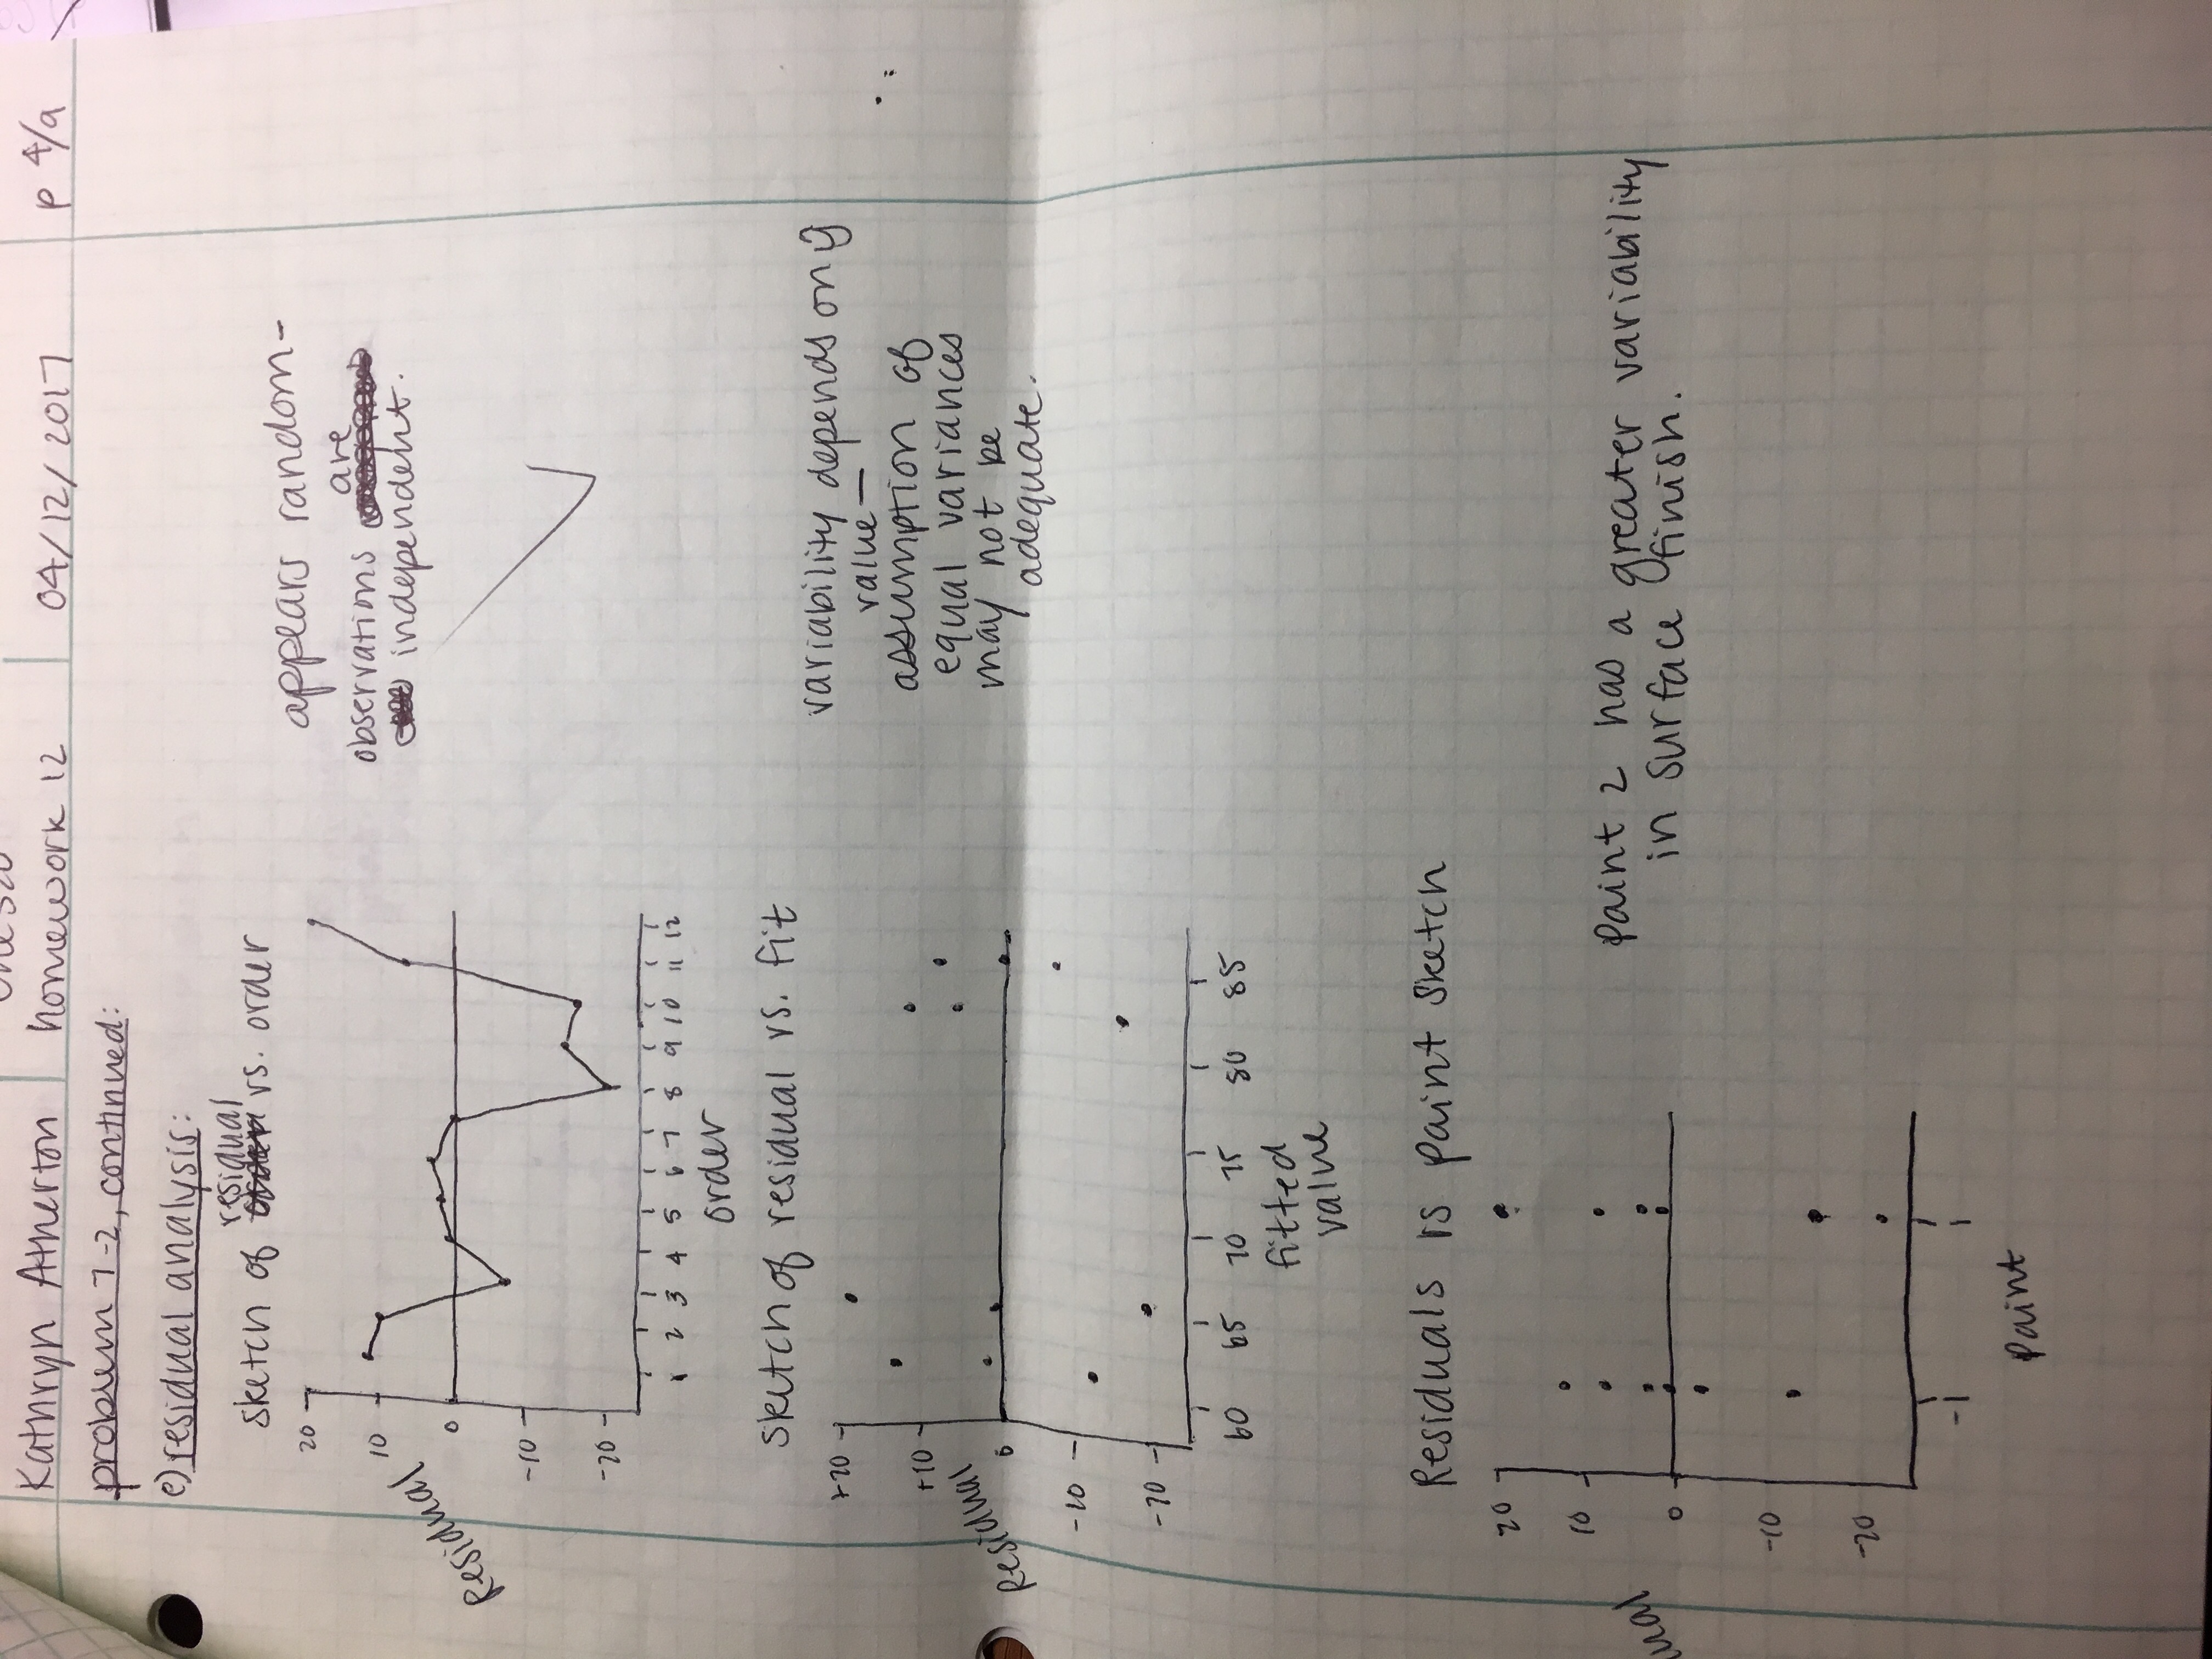 Kathryn Atherton
homework 12
04/12/2017
p 4/9
problem 7-2, continued:
e) residual analysis:
residual
sketch of order vs. order
20
10
0
-10
-20
Residual
1 2 3 4 5 6 7 8 9 10 11 12
order
appears random-
are
observations
independent.
sketch of residual vs. fit
+20
+10
0
-10
-20
Residual
60 65 70 75 80 85
fitted
value
variability depends on ŷ
value—
assumption of
equal variances
may not be
adequate.
Residuals vs paint sketch
20
10
0
-10
-20
-1 1
paint
paint 2 has a greater variability
in surface finish.